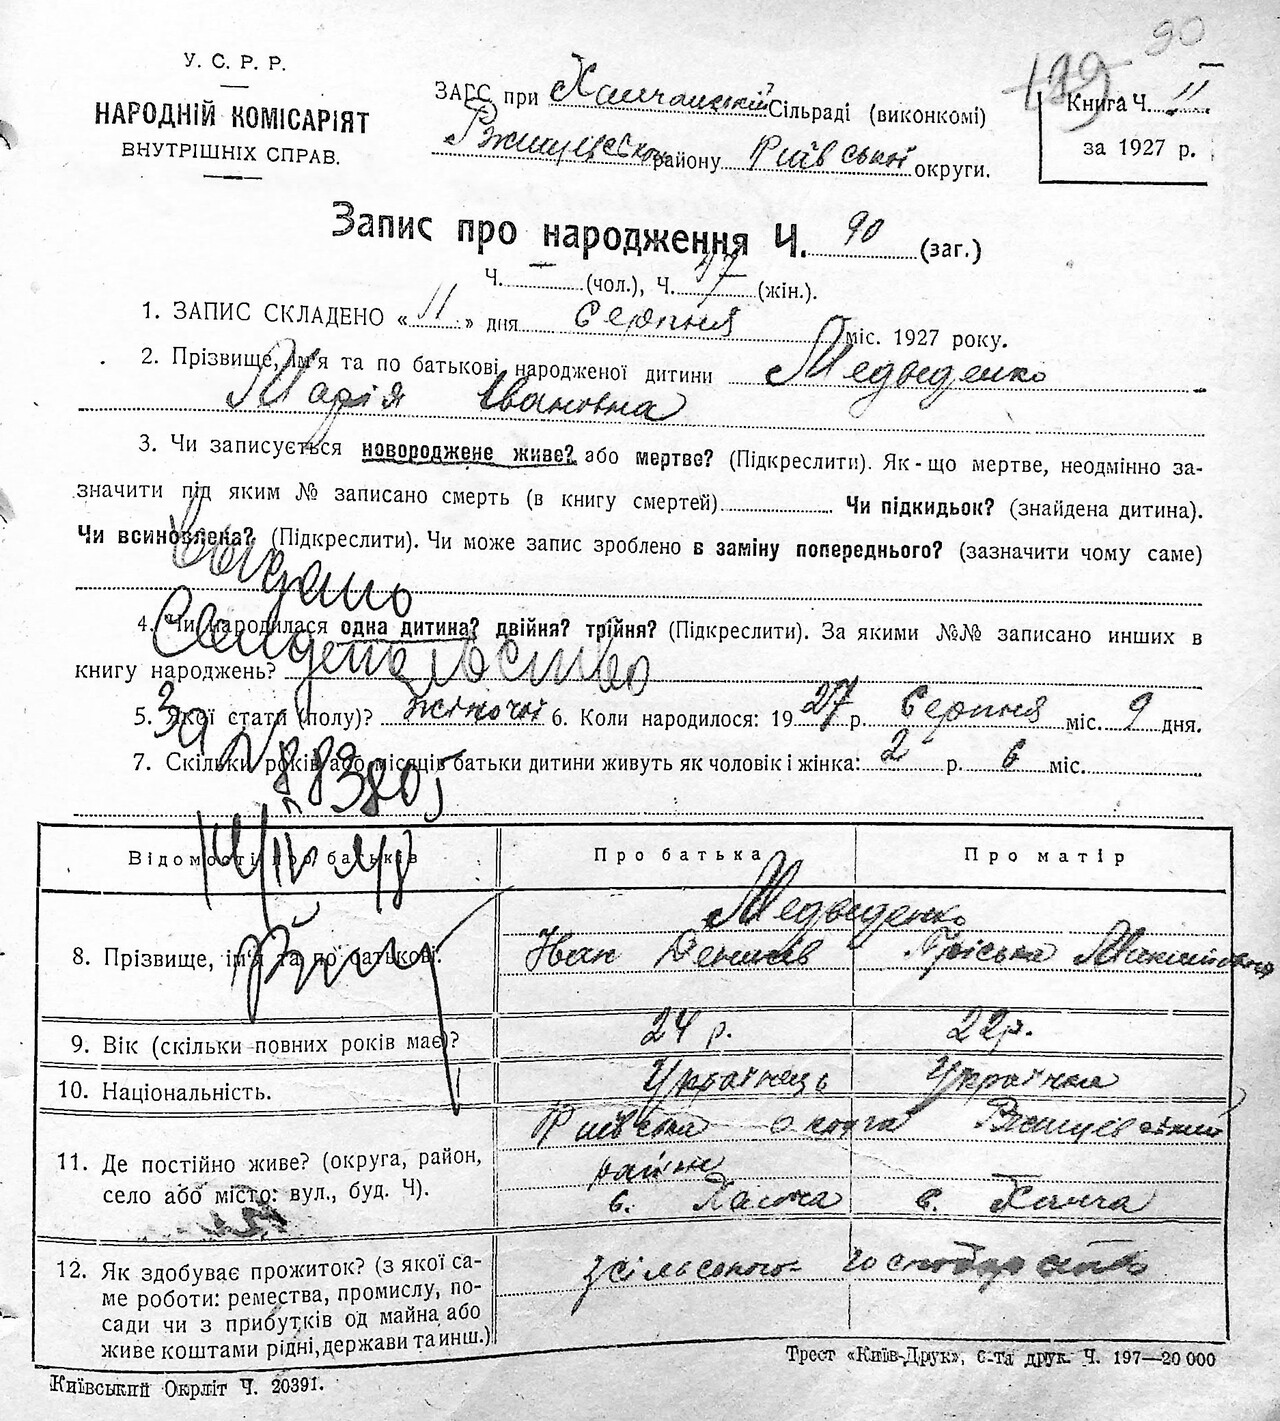 90
189
У. С. Р. Р.
НАРОДНІЙ КОМІСАРІЯТ
ВНУТРІШНІХ СПРАВ.
ЗАГС при Ханчанській Сільраді (виконкомі)
Ржищівського району Київської округи.
Книга Ч. II
за 1927 р.
Запис про народження Ч. 90 (заг.)
Ч. — (чол.), Ч. 47 (жін.).
1. ЗАПИС СКЛАДЕНО « 11 » дня Серпня міс. 1927 року.
2. Прізвище, ім'я та по батькові народженої дитини Медведенко
Марія Івановна
3. Чи записується новороджене живе? або мертве? (Підкреслити). Як-що мертве, неодмінно за-
значити під яким № записано смерть (в книгу смертей) Чи підкидьок? (знайдена дитина).
Чи всиновлена? (Підкреслити). Чи може запис зроблено в заміну попереднього? (зазначити чому саме)
Выдано
4. Чи народилася одна дитина? двійня? трійня? (Підкреслити). За якими №№ записано инших в
Свидетельство
книгу народжень?
5. Якої стати (полу)? жіночої 6. Коли народилося: 1927 р. Серпня міс. 9 дня.
За №
7. Скільки років або місяців батьки дитини живуть як чоловік і жінка: 2 р. 6 міс.
Відомості про батьків Про батька Про матір
Медведенко
8. Прізвище, ім'я та по батькові. Іван Денисів Пріська
9. Вік (скільки повних років має)? 24 р. 22 р.
10. Національність. Українець Українка
Київська округа Ржищівський
11. Де постійно живе? (округа, район, район
село або місто: вул., буд. Ч). с. с. Ханча
12. Як здобуває прожиток? (з якої са- з сільського господарства
ме роботи: ремества, промислу, по-
сади чи з прибутків од майна або
живе коштами рідні, держави та инш.)
Трест «Київ-Друк», 6-та друк. Ч. 197—20 000
Київський Окрліт Ч. 20391.